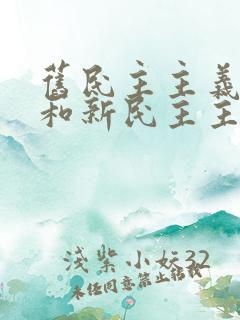 舊民主主義
和新民主主
淺紫小妘32
未经同意禁止转载